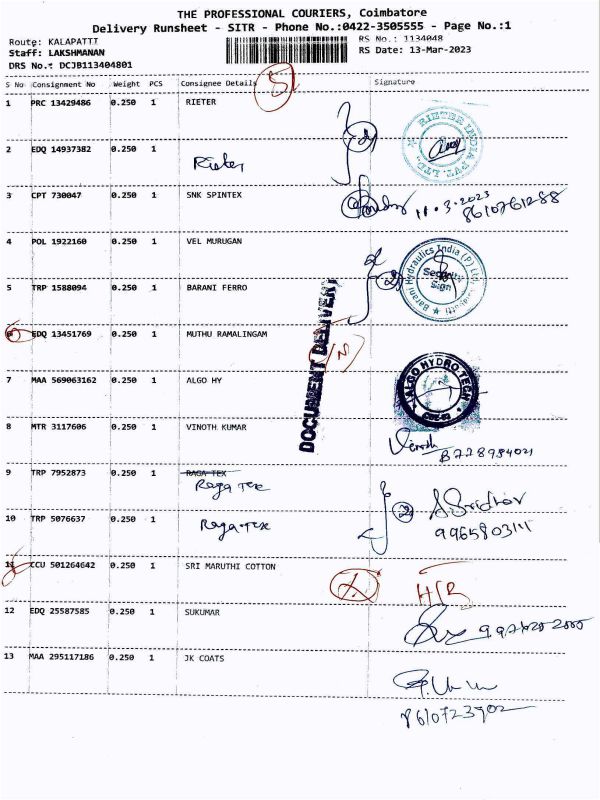 THE PROFESSIONAL COURIERS, Coimbatore
Delivery Runsheet - SITR - Phone No.:0422-3505555 - Page No.:1
Route: KALAPATTI RS No.: 1134048
Staff: LAKSHMANAN RS Date: 13-Mar-2023
DRS No.: DCJB113404801
S No Consignment No Weight PCS Consignee Details Signature
1 PRC 13429486 0.250 1 RIETER
RIETER INDIA PVT. LTD.
2 EDQ 14937382 0.250 1
Rieter
3 CPT 730047 0.250 1 SNK SPINTEX
11.3.2023
8610761288
4 POL 1922160 0.250 1 VEL MURUGAN
Barani Hydraulics India (P) Ltd
Security
Sign
5 TRP 1588094 0.250 1 BARANI FERRO
DOCUMENT DELIVERY
6 EDQ 13451769 0.250 1 MUTHU RAMALINGAM
7 MAA 569063162 0.250 1 ALGO HY
ALGO HYDRO TECH
8 MTR 3117606 0.250 1 VINOTH KUMAR
Vinoth
9 TRP 7952873 0.250 1 RAGA TEX
Raga Tex
10 TRP 5076637 0.250 1
Raga Tex
S. Sridhar
11 CCU 501264642 0.250 1 SRI MARUTHI COTTON
12 EDQ 25587585 0.250 1 SUKUMAR
13 MAA 295117186 0.250 1 JK COATS